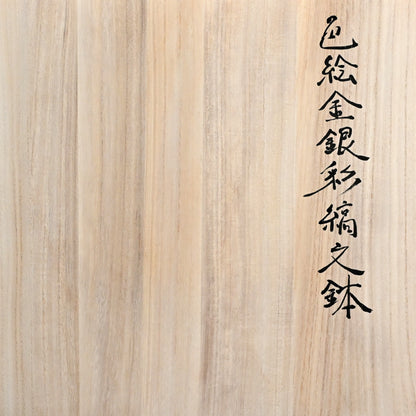 色絵金銀彩縞文鉢